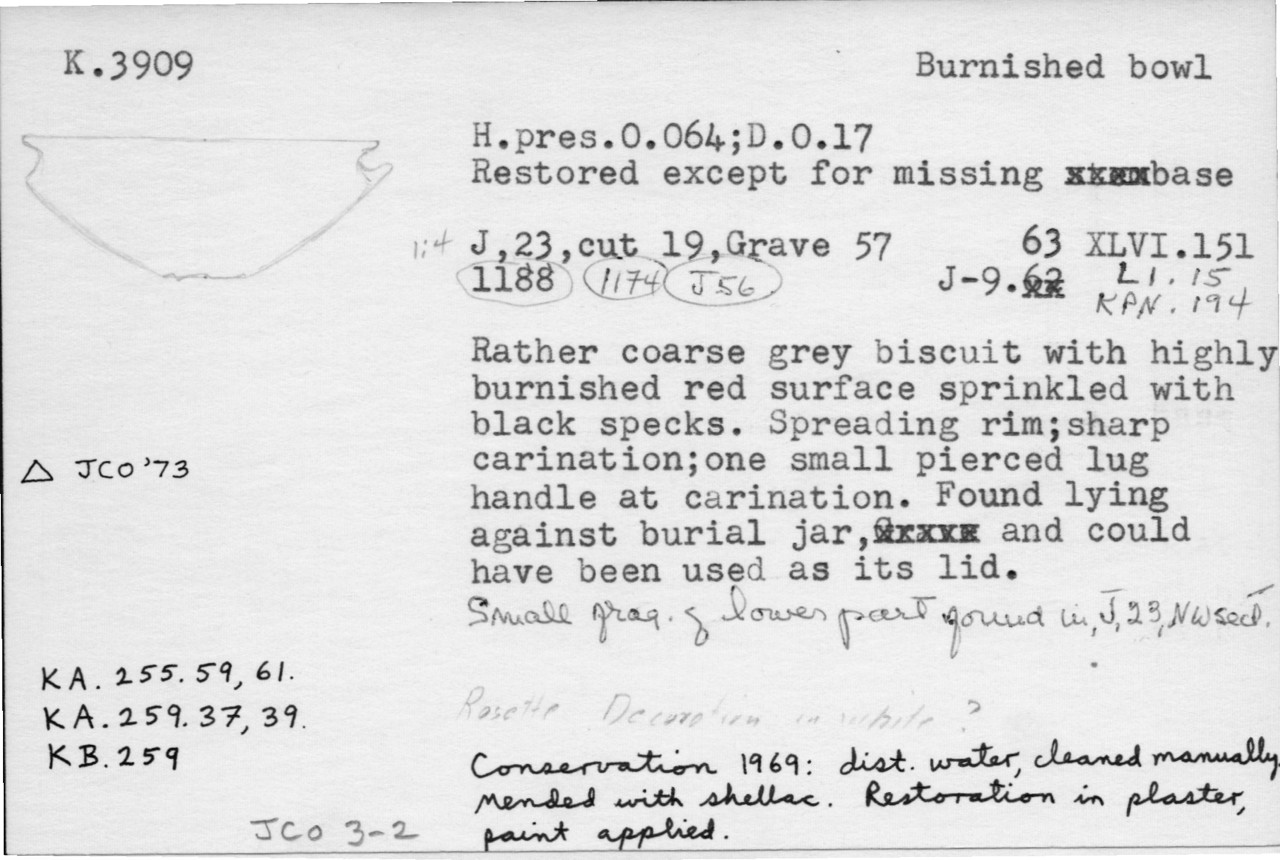 K.3909
Burnished bowl
H.pres.0.064;D.0.17
Restored except for missing base
1:4 J,23,cut 19,Grave 57 63 XLVI.151
1188 1174 J56 J-9.62 LI.15
KPN.194
Rather coarse grey biscuit with highly
burnished red surface sprinkled with
black specks. Spreading rim;sharp
carination;one small pierced lug
handle at carination. Found lying
against burial jar, and could
have been used as its lid.
Small frag. of lower part found in, J,23,NW sect.
△ JCO '73
KA. 255. 59, 61.
KA. 259. 37, 39.
KB. 259
Rosette Decoration in white ?
Conservation 1969: dist. water, cleaned manually.
Mended with shellac. Restoration in plaster,
paint applied.
JCO 3-2